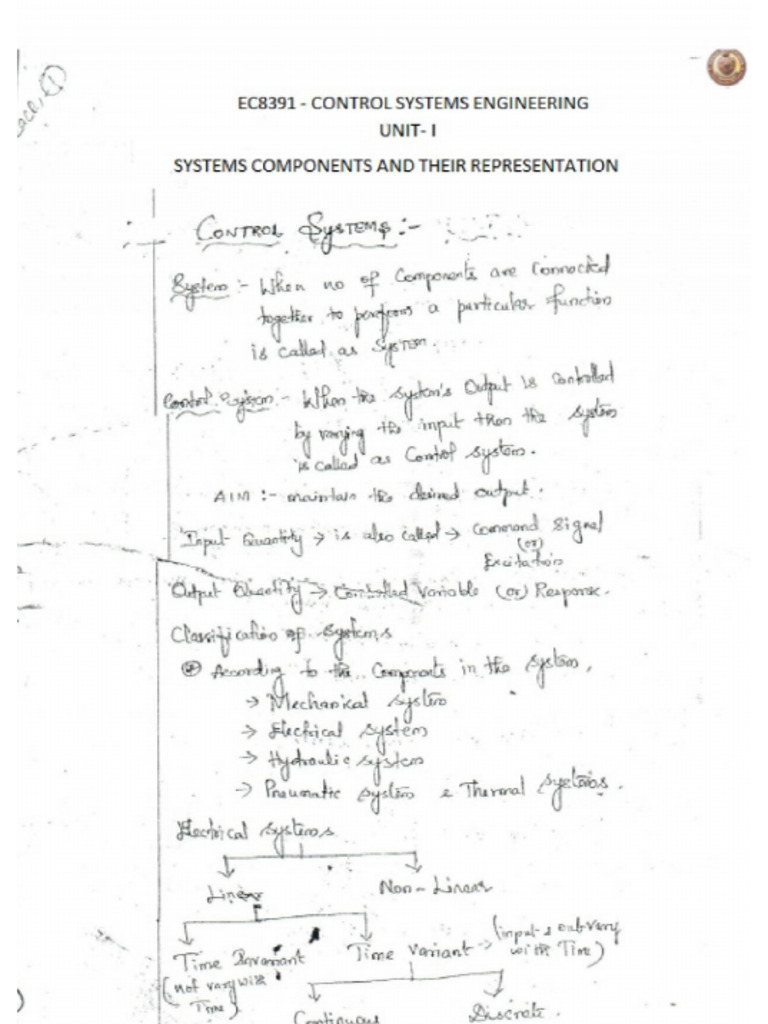 EC8391 - CONTROL SYSTEMS ENGINEERING
UNIT- I
SYSTEMS COMPONENTS AND THEIR REPRESENTATION
CONTROL SYSTEMS :-
System :- When no of Components are Connected
together to perform a particular function
is called as System.
Control System :- When the system's Output is Controlled
by varying the input then the system
is called as Control system.
AIM :- maintain the desired output.
Input Quantity → is also called → Command Signal
(or)
Excitation
Output Quantity → Controlled Variable (or) Response.
Classification of systems
According to the Components in the system.
→ Mechanical system
→ Electrical system
→ Hydraulic system
→ Pneumatic system & Thermal systems.
Electrical systems
Linear Non-Linear
Time Invariant Time Variant → (input & out vary
with Time)
(not vary with
Time)
Continuous Discrete.